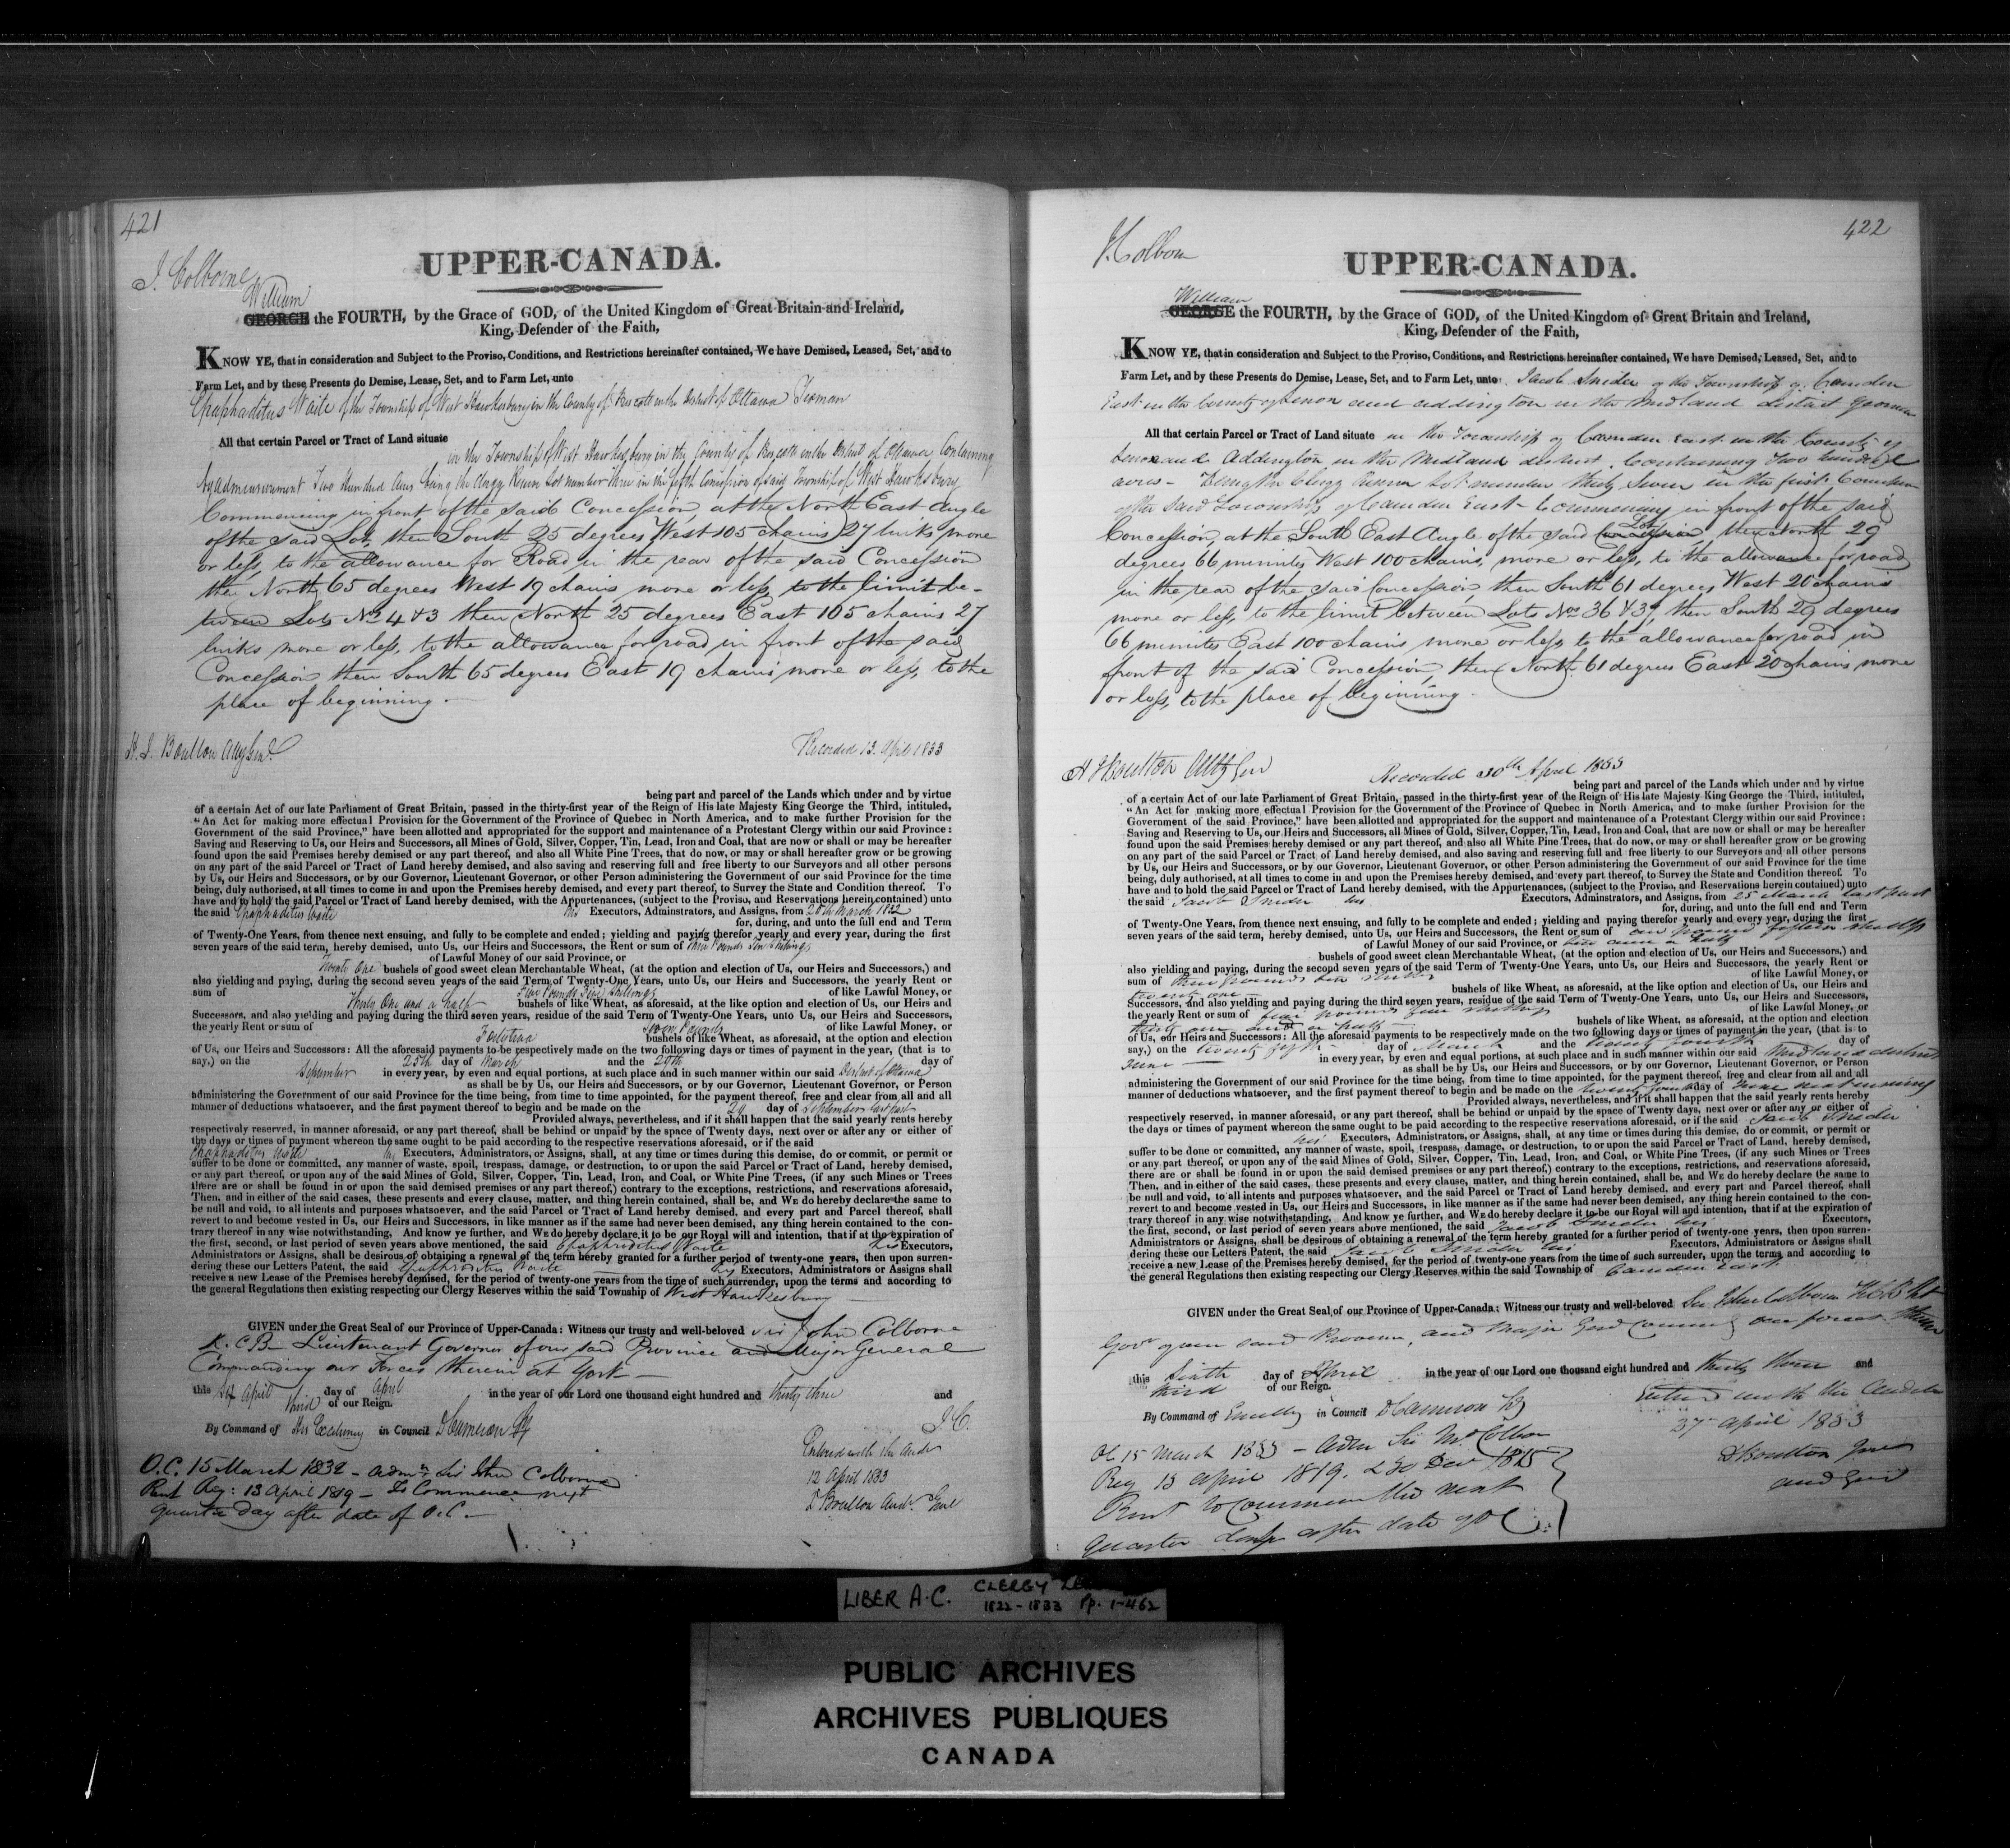 421
J. Colborne
UPPER-CANADA.
William
GEORGE the FOURTH, by the Grace of GOD, of the United Kingdom of Great Britain and Ireland,
King, Defender of the Faith,
KNOW YE, that in consideration and Subject to the Proviso, Conditions, and Restrictions hereinafter contained, We have Demised, Leased, Set, and to
Farm Let, and by these Presents do Demise, Lease, Set, and to Farm Let, unto
Epaphaditus Waite of the Township of West Hawkesbury in the County of Prescott in the District of Ottawa Yeoman
All that certain Parcel or Tract of Land situate
in the Township of West Hawkesbury in the County of Prescott in the District of Ottawa Containing
by admeasurement Two Hundred Acres being the Clergy Reserve Lot number Three in the fifth Concession of said Township of West Hawkesbury
Commencing in front of the said Concession, at the North East Angle
of the said Lot, then South 25 degrees West 105 chains 27 links more
or less, to the allowance for Road in the rear of the said Concession
then North 65 degrees West 19 chains more or less, to the limit be-
tween Lots Nos 4 & 3 then North 25 degrees East 105 chains 27
links more or less, to the allowance for road in front of the said
Concession, then South 65 degrees East 19 chains more or less, to the
place of beginning.
H. J. Boulton Atty Genl.
Recorded 13 April 1833
being part and parcel of the Lands which under and by virtue
of a certain Act of our late Parliament of Great Britain, passed in the thirty-first year of the Reign of His late Majesty King George the Third, intituled,
"An Act for making more effectual Provision for the Government of the Province of Quebec in North America, and to make further Provision for the
Government of the said Province," have been allotted and appropriated for the support and maintenance of a Protestant Clergy within our said Province:
Saving and Reserving to Us, our Heirs and Successors, all Mines of Gold, Silver, Copper, Tin, Lead, Iron and Coal, that are now or shall or may be hereafter
found upon the said Premises hereby demised or any part thereof, and also all White Pine Trees, that do now, or may or shall hereafter grow or be growing
on any part of the said Parcel or Tract of Land hereby demised, and also saving and reserving full and free liberty to our Surveyors and all other persons
by Us, our Heirs and Successors, or by our Governor, Lieutenant Governor, or other Person administering the Government of our said Province for the time
being, duly authorised, at all times to come in and upon the Premises hereby demised, and every part thereof, to Survey the State and Condition thereof. To
have and to hold the said Parcel or Tract of Land hereby demised, with the Appurtenances, (subject to the Proviso, and Reservations herein contained) unto
the said Epaphaditus Waite his Executors, Adminstrators, and Assigns, from 26th March 1832
for, during, and unto the full end and Term
of Twenty-One Years, from thence next ensuing, and fully to be complete and ended; yielding and paying therefor yearly and every year, during the first
seven years of the said term, hereby demised, unto Us, our Heirs and Successors, the Rent or sum of Three Pounds Ten Shillings
of Lawful Money of our said Province, or
Twenty One bushels of good sweet clean Merchantable Wheat, (at the option and election of Us, our Heirs and Successors,) and
also yielding and paying, during the second seven years of the said Term of Twenty-One Years, unto Us, our Heirs and Successors, the yearly Rent or
sum of Five Pounds Five Shillings of like Lawful Money, or
Thirty One and a half bushels of like Wheat, as aforesaid, at the like option and election of Us, our Heirs and
Successors, and also yielding and paying during the third seven years, residue of the said Term of Twenty-One Years, unto Us, our Heirs and Successors,
the yearly Rent or sum of Seven Pounds of like Lawful Money, or
Forty two bushels of like Wheat, as aforesaid, at the option and election
of Us, our Heirs and Successors: All the aforesaid payments to be respectively made on the two following days or times of payment in the year, (that is to
say,) on the 25th day of March and the 29th day of
September in every year, by even and equal portions, at such place and in such manner within our said District of Ottawa
as shall be by Us, our Heirs and Successors, or by our Governor, Lieutenant Governor, or Person
administering the Government of our said Province for the time being, from time to time appointed, for the payment thereof, free and clear from all and all
manner of deductions whatsoever, and the first payment thereof to begin and be made on the 29 day of September last past
Provided always, nevertheless, and if it shall happen that the said yearly rents hereby
respectively reserved, in manner aforesaid, or any part thereof, shall be behind or unpaid by the space of Twenty days, next over or after any or either of
the days or times of payment whereon the same ought to be paid according to the respective reservations aforesaid, or if the said
Epaphaditus Waite his Executors, Administrators, or Assigns, shall, at any time or times during this demise, do or commit, or permit or
suffer to be done or committed, any manner of waste, spoil, trespass, damage, or destruction, to or upon the said Parcel or Tract of Land, hereby demised,
or any part thereof, or upon any of the said Mines of Gold, Silver, Copper, Tin, Lead, Iron, and Coal, or White Pine Trees, (if any such Mines or Trees
there are or shall be found in or upon the said demised premises or any part thereof,) contrary to the exceptions, restrictions, and reservations aforesaid,
Then, and in either of the said cases, these presents and every clause, matter, and thing herein contained, shall be, and We do hereby declare the same to
be null and void, to all intents and purposes whatsoever, and the said Parcel or Tract of Land hereby demised, and every part and Parcel thereof, shall
revert to and become vested in Us, our Heirs and Successors, in like manner as if the same had never been demised, any thing herein contained to the con-
trary thereof in any wise notwithstanding. And know ye further, and We do hereby declare it to be our Royal will and intention, that if at the expiration of
the first, second, or last period of seven years above mentioned, the said Epaphroditus Waite his Executors,
Administrators or Assigns, shall be desirous of obtaining a renewal of the term hereby granted for a further period of twenty-one years, then upon surren-
dering these our Letters Patent, the said Epaphroditus Waite his Executors, Administrators or Assigns shall
receive a new Lease of the Premises hereby demised, for the period of twenty-one years from the time of such surrender, upon the terms and according to
the general Regulations then existing respecting our Clergy Reserves within the said Township of West Hawkesbury
GIVEN under the Great Seal of our Province of Upper-Canada: Witness our trusty and well-beloved Sir John Colborne
K.C.B. Lieutenant Governor of our said Province and Major General
Commanding our Forces therein at York
this 1st April day of April in the year of our Lord one thousand eight hundred and thirty three and
third of our Reign.
By Command of His Excellency in Council D Cameron Sy
J.C.
O.C. 15 March 1832 - Admn Sir John Colborne
Rent Reg: 13 April 1819 - To Commence next
quarter day after date of O.C.
Entered with the Audr
12 April 1833
D Boulton Audr. Genl
422
J. Colborne
UPPER-CANADA.
William
GEORGE the FOURTH, by the Grace of GOD, of the United Kingdom of Great Britain and Ireland,
King, Defender of the Faith,
KNOW YE, that in consideration and Subject to the Proviso, Conditions, and Restrictions hereinafter contained, We have Demised, Leased, Set, and to
Farm Let, and by these Presents do Demise, Lease, Set, and to Farm Let, unto Jacob Snider of the Township of Camden
East in the County of Lenox and Addington in the Midland District Yeoman
All that certain Parcel or Tract of Land situate in the Township of Camden East in the County of
Lenox and Addington in the Midland district. Containing Two hundred
acres - Being the Clergy Reserve Lot number thirty seven in the first Concession
of the said Township of Camden East - Commencing in front of the said
Concession, at the South East Angle of the said Lot, then North 29
degrees 66 minutes West 100 chains, more or less, to the allowance for road
in the rear of the said Concession, then South 61 degrees West 20 chains
more or less, to the limit between Lots Nos 36 & 37, then South 29 degrees
66 minutes East 100 chains more or less to the allowance for road in
front of the said Concession, then North 61 degrees East 20 chains more
or less, to the place of beginning.
H J Boulton Atty Gen
Recorded 30th April 1833
being part and parcel of the Lands which under and by virtue
of a certain Act of our late Parliament of Great Britain, passed in the thirty-first year of the Reign of His late Majesty King George the Third, intituled,
"An Act for making more effectual Provision for the Government of the Province of Quebec in North America, and to make further Provision for the
Government of the said Province," have been allotted and appropriated for the support and maintenance of a Protestant Clergy within our said Province:
Saving and Reserving to Us, our Heirs and Successors, all Mines of Gold, Silver, Copper, Tin, Lead, Iron and Coal, that are now or shall or may be hereafter
found upon the said Premises hereby demised or any part thereof, and also all White Pine Trees, that do now, or may or shall hereafter grow or be growing
on any part of the said Parcel or Tract of Land hereby demised, and also saving and reserving full and free liberty to our Surveyors and all other persons
by Us, our Heirs and Successors, or by our Governor, Lieutenant Governor, or other Person administering the Government of our said Province for the time
being, duly authorised, at all times to come in and upon the Premises hereby demised, and every part thereof, to Survey the State and Condition thereof. To
have and to hold the said Parcel or Tract of Land hereby demised, with the Appurtenances, (subject to the Proviso, and Reservations herein contained) unto
the said Jacob Snider his Executors, Adminstrators, and Assigns, from 25 March last past
for, during, and unto the full end and Term
of Twenty-One Years, from thence next ensuing, and fully to be complete and ended; yielding and paying therefor yearly and every year, during the first
seven years of the said term, hereby demised, unto Us, our Heirs and Successors, the Rent or sum of one pound fifteen shillgs
of Lawful Money of our said Province, or ten and a half
bushels of good sweet clean Merchantable Wheat, (at the option and election of Us, our Heirs and Successors,) and
also yielding and paying, during the second seven years of the said Term of Twenty-One Years, unto Us, our Heirs and Successors, the yearly Rent or
sum of three pounds ten shills of like Lawful Money, or
twenty one bushels of like Wheat, as aforesaid, at the like option and election of Us, our Heirs and
Successors, and also yielding and paying during the third seven years, residue of the said Term of Twenty-One Years, unto Us, our Heirs and Successors,
the yearly Rent or sum of five pounds five shillings of like Lawful Money, or
thirty one and a half bushels of like Wheat, as aforesaid, at the option and election
of Us, our Heirs and Successors: All the aforesaid payments to be respectively made on the two following days or times of payment in the year, (that is to
say,) on the twenty fifth day of March and the twenty fourth day of
June in every year, by even and equal portions, at such place and in such manner within our said Midland district
as shall be by Us, our Heirs and Successors, or by our Governor, Lieutenant Governor, or Person
administering the Government of our said Province for the time being, from time to time appointed, for the payment thereof, free and clear from all and all
manner of deductions whatsoever, and the first payment thereof to begin and be made on the twenty fourth day of June next ensuing
Provided always, nevertheless, and if it shall happen that the said yearly rents hereby
respectively reserved, in manner aforesaid, or any part thereof, shall be behind or unpaid by the space of Twenty days, next over or after any or either of
the days or times of payment whereon the same ought to be paid according to the respective reservations aforesaid, or if the said Jacob Snider
his Executors, Administrators, or Assigns, shall, at any time or times during this demise, do or commit, or permit or
suffer to be done or committed, any manner of waste, spoil, trespass, damage, or destruction, to or upon the said Parcel or Tract of Land, hereby demised,
or any part thereof, or upon any of the said Mines of Gold, Silver, Copper, Tin, Lead, Iron, and Coal, or White Pine Trees, (if any such Mines or Trees
there are or shall be found in or upon the said demised premises or any part thereof,) contrary to the exceptions, restrictions, and reservations aforesaid,
Then, and in either of the said cases, these presents and every clause, matter, and thing herein contained, shall be, and We do hereby declare the same to
be null and void, to all intents and purposes whatsoever, and the said Parcel or Tract of Land hereby demised, and every part and Parcel thereof, shall
revert to and become vested in Us, our Heirs and Successors, in like manner as if the same had never been demised, any thing herein contained to the con-
trary thereof in any wise notwithstanding. And know ye further, and We do hereby declare it to be our Royal will and intention, that if at the expiration of
the first, second, or last period of seven years above mentioned, the said Jacob Snider his Executors,
Administrators or Assigns, shall be desirous of obtaining a renewal of the term hereby granted for a further period of twenty-one years, then upon surren-
dering these our Letters Patent, the said Jacob Snider his Executors, Administrators or Assigns shall
receive a new Lease of the Premises hereby demised, for the period of twenty-one years from the time of such surrender, upon the terms and according to
the general Regulations then existing respecting our Clergy Reserves within the said Township of Camden East
GIVEN under the Great Seal of our Province of Upper-Canada: Witness our trusty and well-beloved Sir John Colborne KCB Lt
Govr of our said Province, and Major Genl Commg our forces therein
this Sixth day of April in the year of our Lord one thousand eight hundred and thirty three and
third of our Reign.
By Command of Excelly in Council D Cameron Sy
Entered with the Auditor
27 April 1833
D Boulton Junr
Aud Genl
OC 15 March 1833 - Adm Sir Jno Colborne
Reg 13 April 1819. & 30 Dec 1815
Rent to Commence the next
quarter day after date of OC
LIBER A.C. CLERGY
1822-1833 Pp. 1-462
PUBLIC ARCHIVES
ARCHIVES PUBLIQUES
CANADA